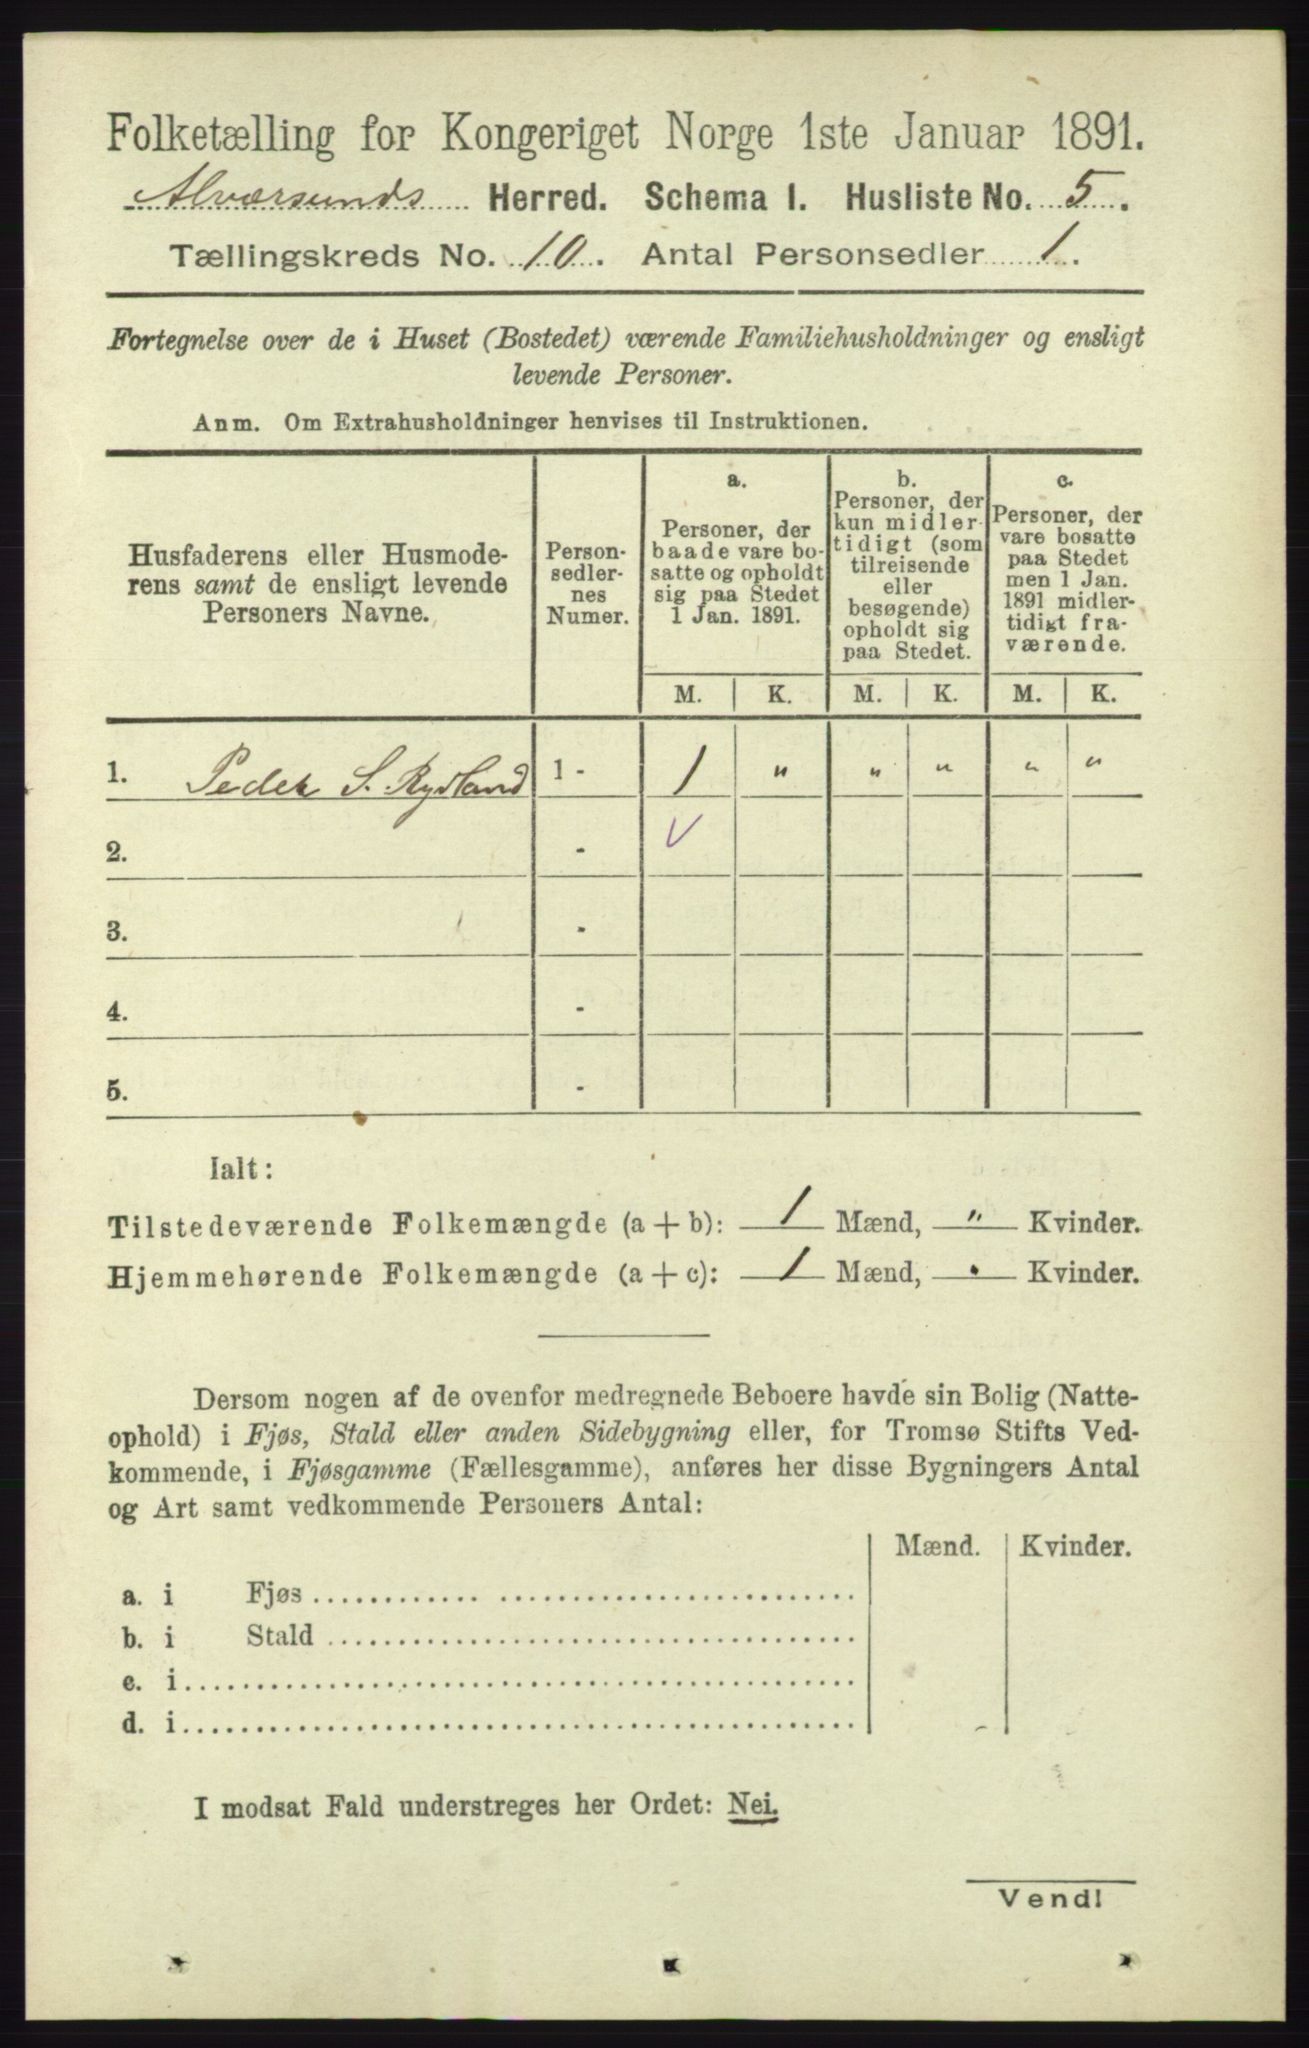 Folketælling for Kongeriget Norge 1ste Januar 1891.
Alværsunds Herred. Schema I. Husliste No. 5.
Tællingskreds No. 10. Antal Personsedler 1.
Fortegnelse over de i Huset (Bostedet) værende Familiehusholdninger og ensligt
levende Personer.
Anm. Om Extrahusholdninger henvises til Instruktionen.
Husfaderens eller Husmode-
rens samt de ensligt levende
Personers Navne.
Person-
sedler-
nes
Numer.
a.
Personer, der
baade vare bo-
satte og opholdt
sig paa Stedet
1 Jan. 1891.
b.
Personer, der
kun midler-
tidigt (som
tilreisende
eller
besøgende)
opholdt sig
paa Stedet.
c.
Personer, der
vare bosatte
paa Stedet
men 1 Jan.
1891 midler-
tidigt fra-
værende.
M. K. M. K. M. K.
1. Peder S. Rydland 1 - 1 " " " " "
2. - V
3. -
4. -
5. -
Ialt:
Tilstedeværende Folkemængde (a + b): 1 Mænd, " Kvinder.
Hjemmehørende Folkemængde (a + c): 1 Mænd, . Kvinder.
Dersom nogen af de ovenfor medregnede Beboere havde sin Bolig (Natte-
ophold) i Fjøs, Stald eller anden Sidebygning eller, for Tromsø Stifts Ved-
kommende, i Fjøsgamme (Fællesgamme), anføres her disse Bygningers Antal
og Art samt vedkommende Personers Antal:
Mænd. Kvinder.
a. i Fjøs
b. i Stald
c. i
d. i
I modsat Fald understreges her Ordet: Nei.
Vend!